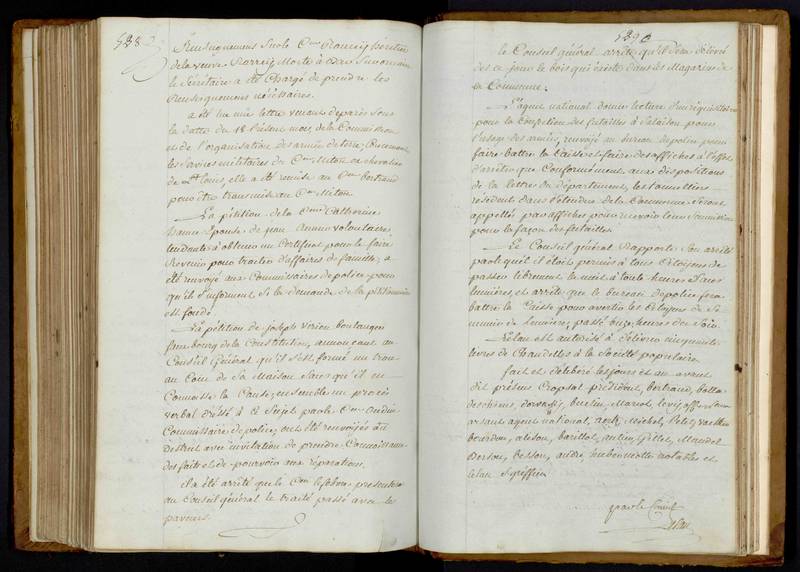 528
Renseignemens sur le Cen
de la veuve morte à
le Sécrétaire a été Chargé de prendre les
Renseignemens nécéssaires.
a été lu une lettre venant de paris Sous
la datte du 18 présent mois, de la Commission
et de l'organisation des armées de terre, Concernant
les Services militaires du Cen Miton Ex chevalier
de St louis, elle a été remise au Cen bertrand
pour être transmise au Cen Miton
La pétition de la Cenne Catherine
Epouse de jean volontaire,
tendante à obtenir un Certificat pour le faire
Revenir pour traiter d'affaires de famille, a
été renvoyé aux Commissaires de police pour
qu'ils s'informent Si la demande de la pétitionnaire
est fondé.
La pétition de joseph boulanger
fauxbourg de la Constitution, annoncant au
Conseil Général qu'il s'est formé un trou
au Coin de Sa Maison Sans qu'il en
Connoisse la Cause, ensemble un procès
verbal dréssé à ce Sujet par le Cen oudin
Commissaire de police, ont été renvoyés au
District avec invitation de prendre Connoissance
des faits et de pourvoir aux réparations.
il a été arrêté que le Cen lefebvre présentera
au Conseil général le traité passé avec les
paveurs.
529
le Conseil général arrête qu'il Sera délivré
dès ce jour le bois qui éxiste dans les Magazins de
la Commune.
L'agent national donne lecture d'un réquisitoire
pour la Confection des futailles à Salaison pour
l'usage des armées, renvoyé au bureau de police pour
faire battre la Caisse et faire des affiches à l'effet
d'arrêter que Conformément aux dispositions
de la lettre du département, les tonneliers
résident dans l'étendue de la Commune Seront
appellés par affiches pour recevoir leur Soumission
pour la façon des futailles.
Le Conseil général Rapporte Son arrêté
par lequel il étoit permis à tous Citoyens de
passer librement la nuit à toute heures Sans
lumières, et arrête que le bureau de police fera
battre la Caisse pour avertir les Citoyens de Se
munir de lumière, passé onze heures du Soir.
est autorisé à délivrer cinquante
livres de Chandelles à la Société populaire
fait et délibéré les jours et an avant
dit présens Cropsal président, bertrand,
buclin, Mariot,
agent national, Michel,
bourdon, barillot, antier, Gillet, Maudet
besson, andré, notables et
Sgréffier
par le Conseil